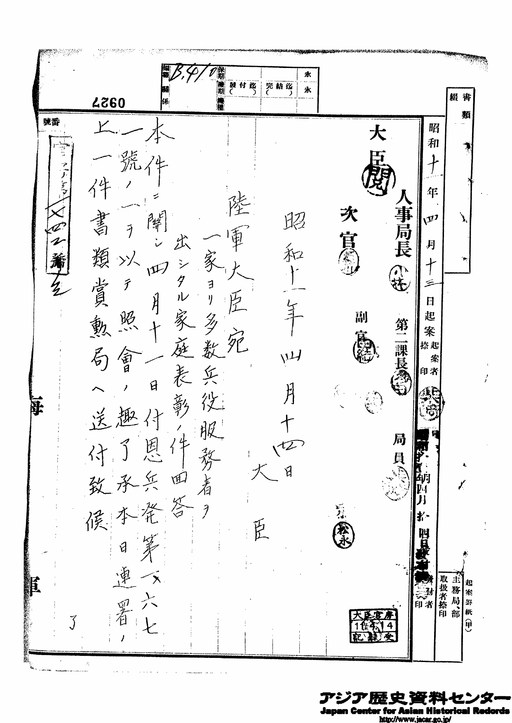 書類
組
永久
保存期限
完結迄
受付迄
B.410
0927
昭和十一年四月十三日起案
起案者捺印
起案罫紙(甲)
主務局、部
取扱者捺印
大臣
閲
人事局長
次官
第二課長
副官
局員
松永
昭和十一年四月十四日
大臣
陸軍大臣宛
一家ヨリ多数兵役服務者ヲ
出シタル家庭表彰ノ件回答
本件ニ関シ四月十一日付恩兵発第一六七
一號ノ一ヲ以テ照會ノ趣了承本日連署ノ
上一件書類賞勲局ヘ送付致候
了
號番
海
軍
大臣官房
11.4.14
アジア歴史資料センター
Japan Center for Asian Historical Records
http://www.jacar.go.jp/